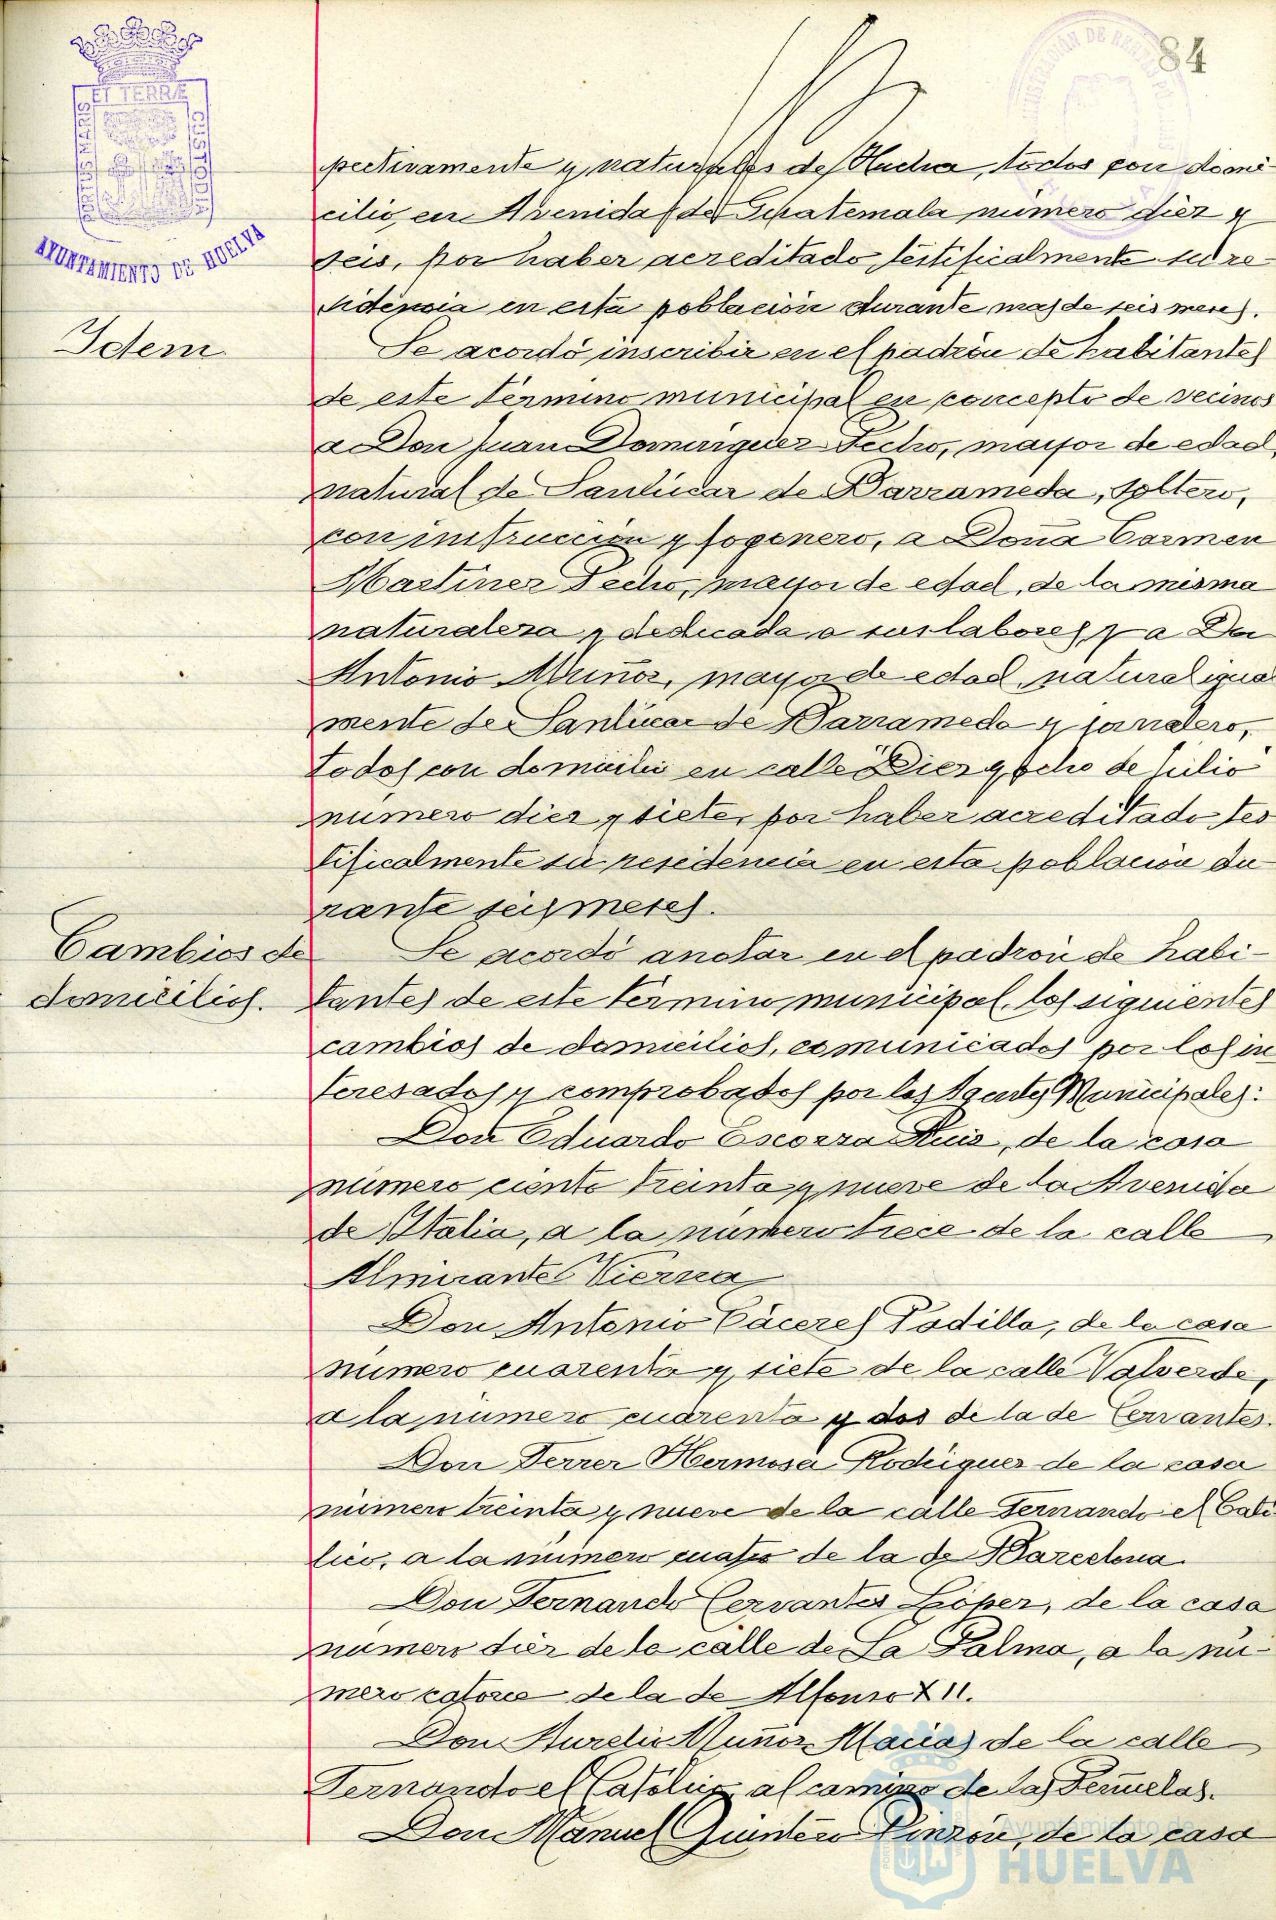 84
ET TERRÆ
PORTUS MARIS
CUSTODIA
AYUNTAMIENTO DE HUELVA
pectivamente y naturales de Huelva, todos con domi-
cilio, en Avenida de Guatemala número diez y
seis, por haber acreditado testificalmente su re-
sidencia en esta población durante mas de seis meses.
Idem.
Se acordó inscribir en el padrón de habitantes
de este término municipal en concepto de vecinos
a Don Juan Dominguez Pecho, mayor de edad,
natural de Sanlúcar de Barrameda, soltero,
con instrucción y fogonero, a Doña Carmen
Martinez Pecho, mayor de edad, de la misma
naturaleza y dedicada a sus labores y a Don
Antonio Muñoz, mayor de edad, natural igual
mente de Sanlúcar de Barrameda y jornalero,
todos con domicilio en calle "Diez y ocho de Julio"
número diez y siete, por haber acreditado tes
tificalmente su residencia en esta población du-
rante seis meses.
Cambios de
domicilios.
Se acordó anotar en el padrón de habi-
tantes de este término municipal, los siguientes
cambios de domicilios, comunicados por los in
teresados y comprobados por los Agentes Municipales:
Don Eduardo Escorza Ruiz, de la casa
número ciento treinta y nueve de la Avenida
de Italia, a la número trece de la calle
Almirante Vierna
Don Antonio Cáceres Padilla, de la casa
número cuarenta y siete de la calle Valverde,
a la número cuarenta y dos de la de Cervantes.
Don Ferrer Hermosa Rodriguez de la casa
número treinta y nueve de la calle Fernando el Cató-
lico, a la número cuatro de la de Barcelona.
Don Fernando Cervantes López, de la casa
número diez de la calle de La Palma, a la nú-
mero catorce de la de Alfonso XII.
Don Aurelio Muñoz Macias de la calle
Fernando el Católico al camino de las Peñuelas.
Don Manuel Quintero Pinzón, de la casa
Ayuntamiento de
HUELVA